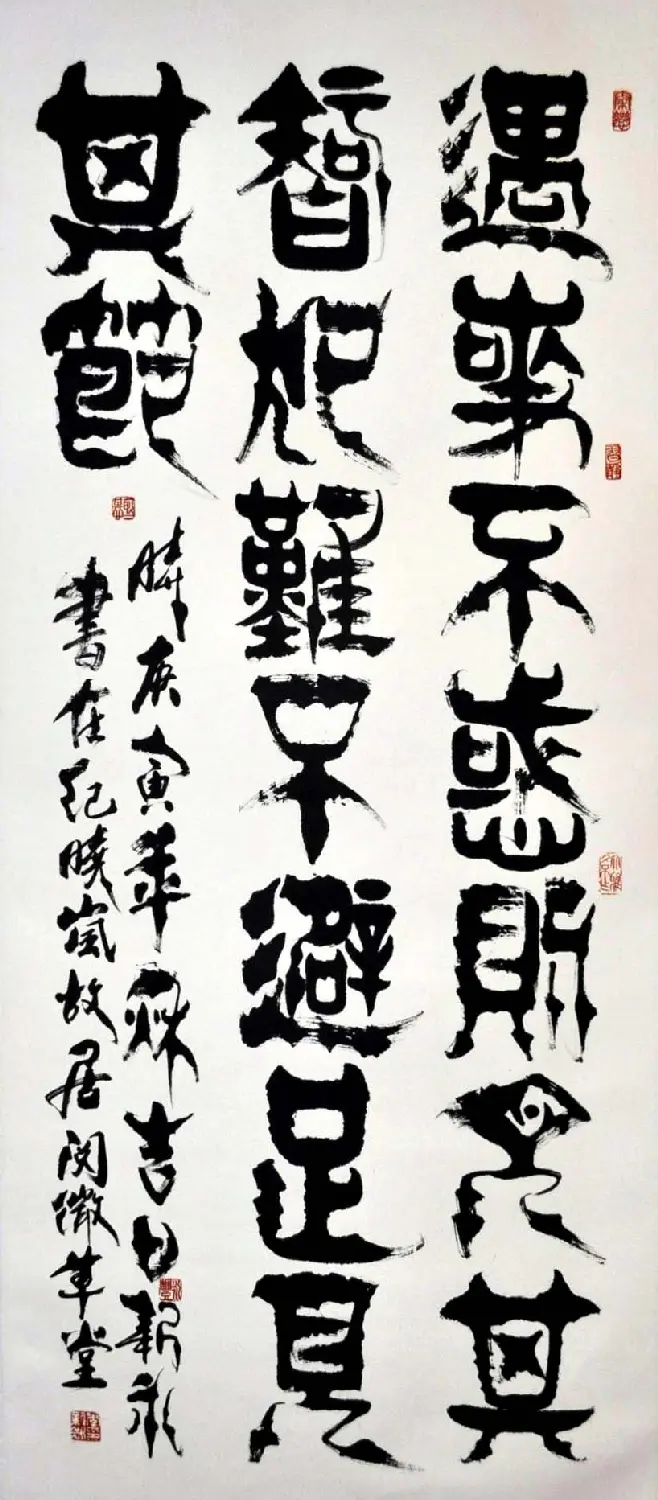 遇事不惑則見其
智犯難不避足見
其節
時庚寅年秋吉日永
書在紀曉嵐故居閱微草堂